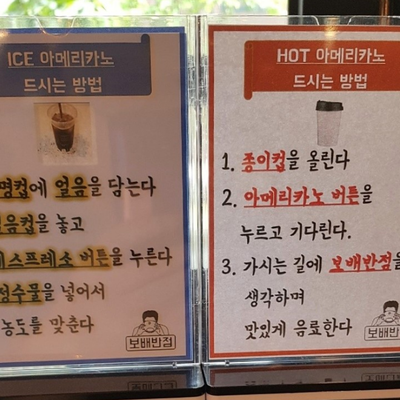 ICE 아메리카노
드시는 방법
명컵에 얼음을 담는다
음컵을 놓고
스프레소 버튼을 누른다
수물을 넣어서
농도를 맞춘다
보배반점
HOT 아메리카노
드시는 방법
1. 종이컵을 올린다
2. 아메리카노 버튼을
누르고 기다린다.
3. 가시는 길에 보배반점을
생각하며
맛있게 음료한다
보배반